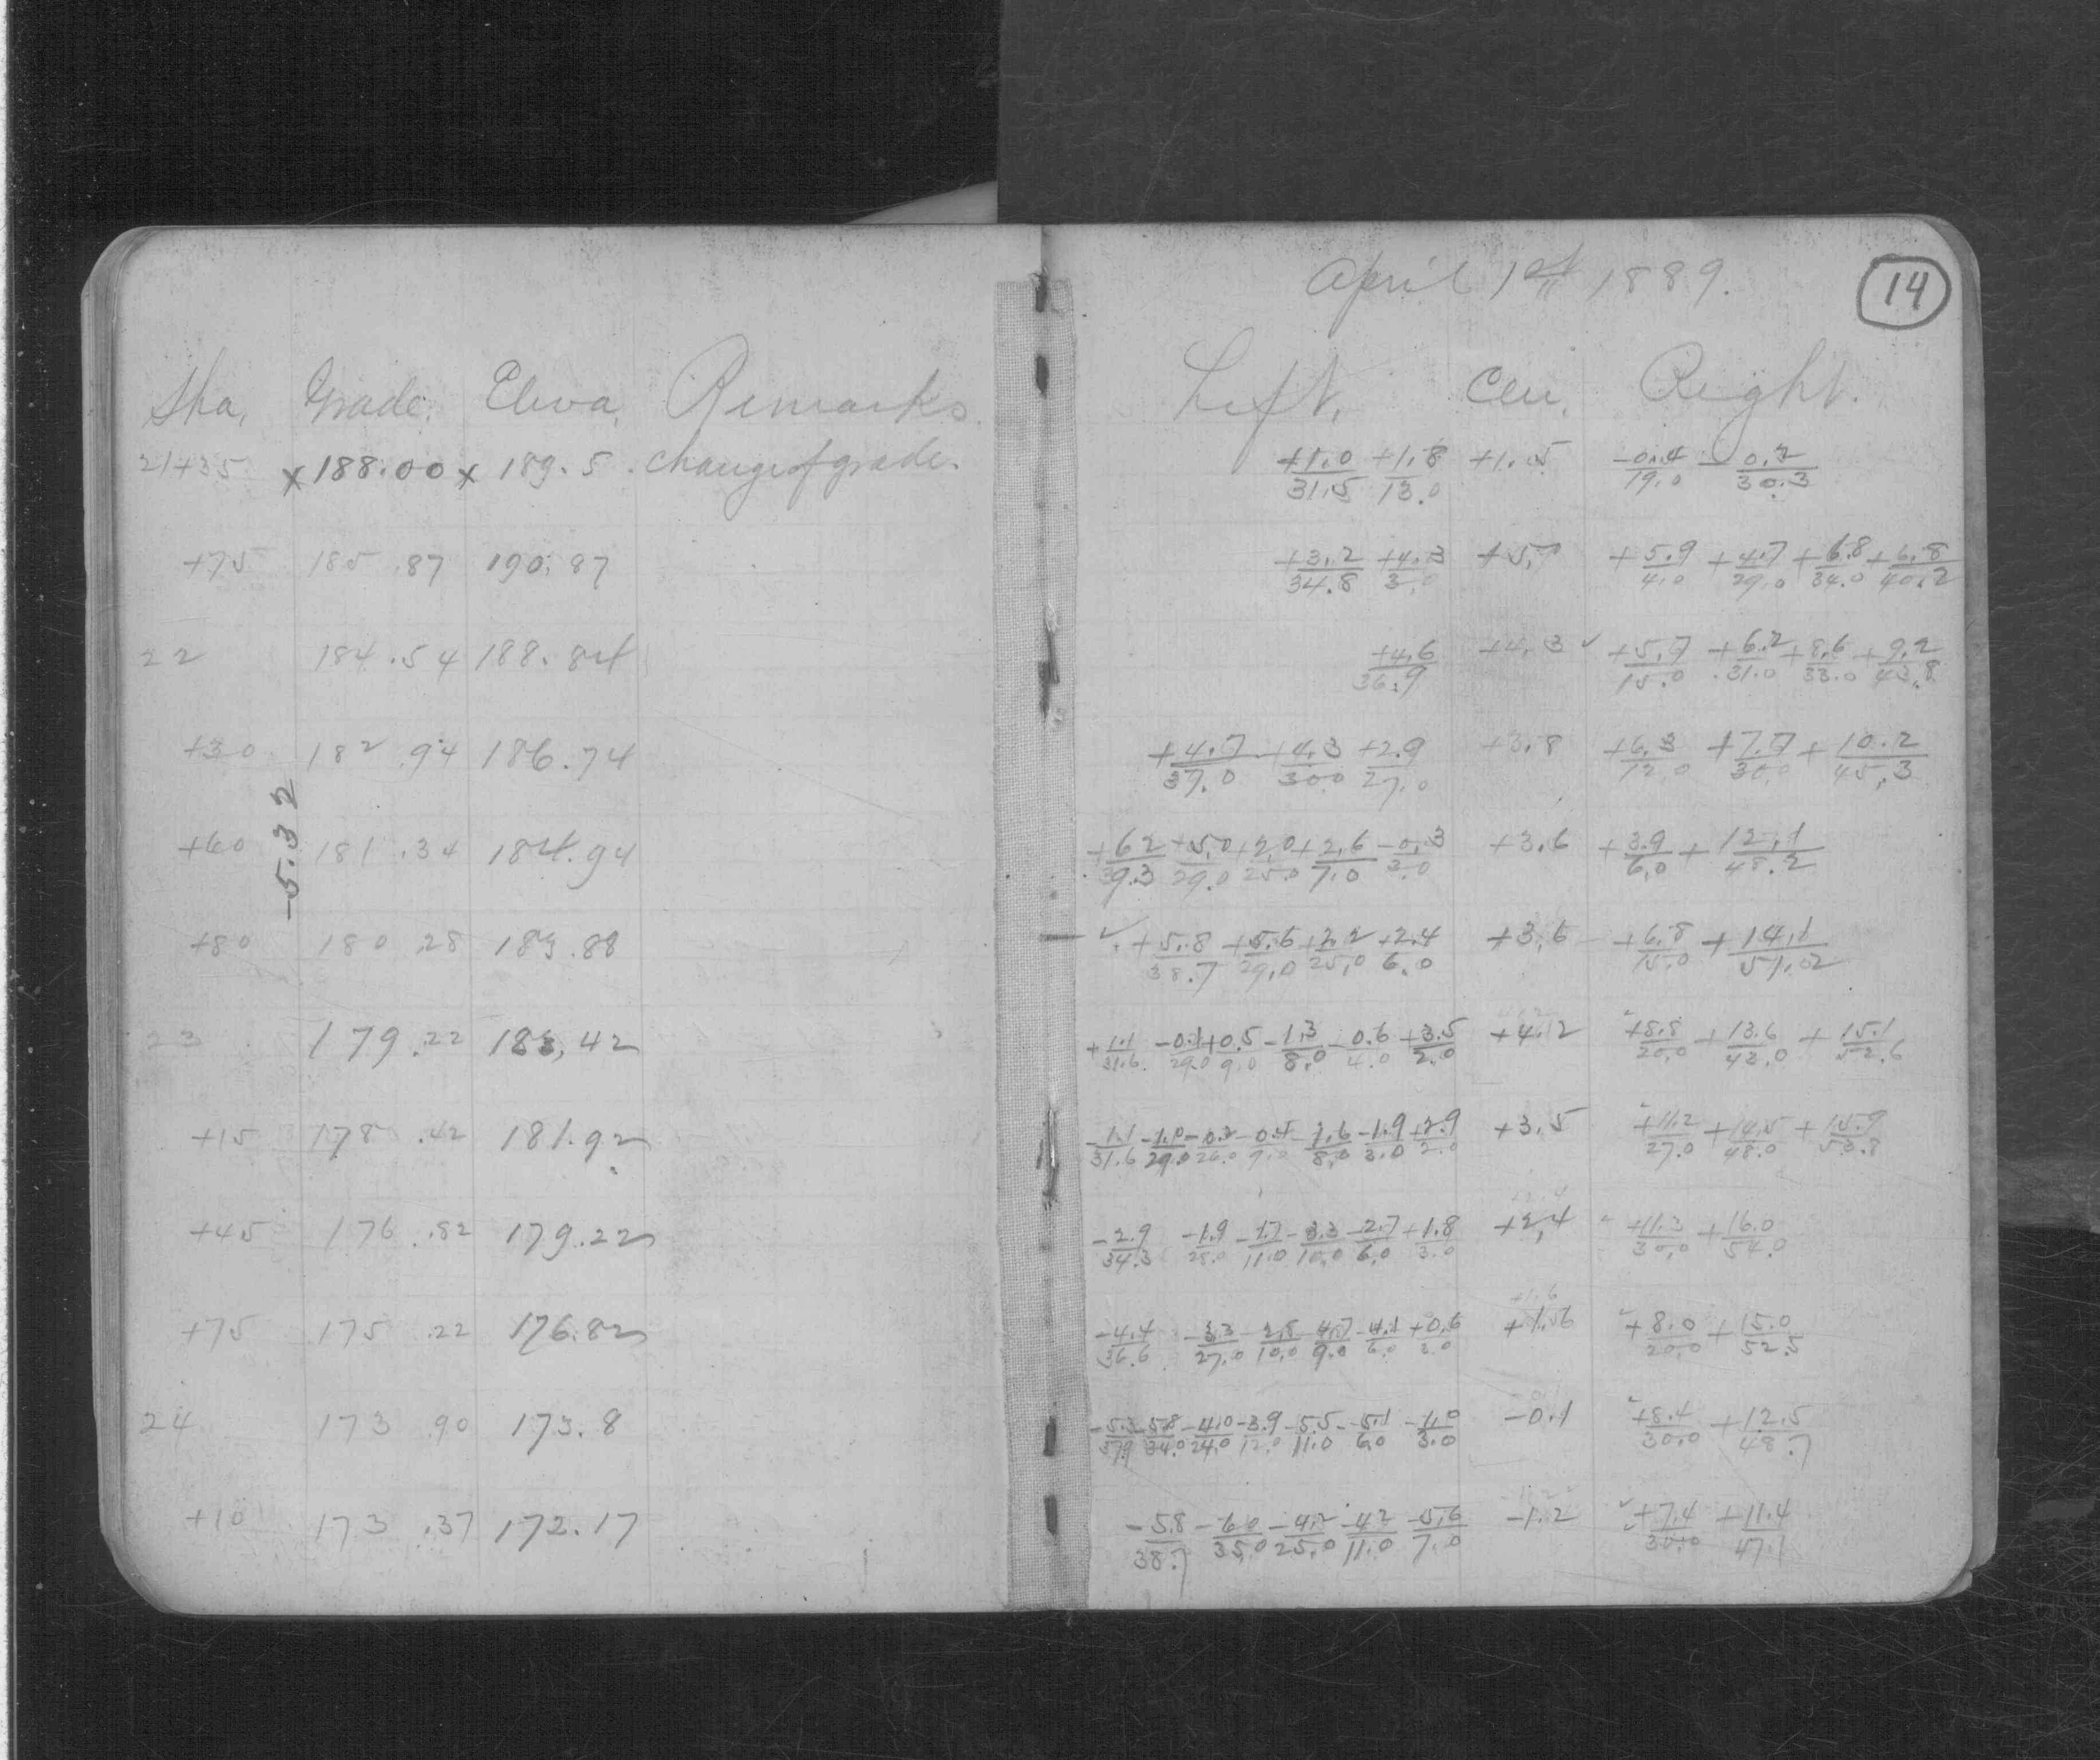 Sta. Grade. Eleva. Remarks
21+35 x 188.00 x 189.5 . change of grade.
+75 185.87 190.97
22 184.54 188.84
+30 182.94 186.74
-5.32
+60 181.34 184.94
+80 180.28 183.88
23 179.22 183.42
+15 178.42 181.92
+45 176.82 179.22
+75 175.22 176.82
24 173.90 173.8
+10 173.37 172.17
April 1st 1889.
14
Left. Cen. Right.
+1.0/31.5 +1.8/13.0 +1.5 -0.4/19.0 -0.2/30.3
+3.2/34.8 +4.3/3.0 +5.1 +5.9/4.0 +4.7/29.0 +6.8/34.0 +6.8/40.2
+4.6/36.9 +4.3 +5.7/15.0 +6.2/31.0 +8.6/33.0 +9.2/43.8
+4.7/37.0 +4.3/30.0 +2.9/27.0 +3.8 +6.3/12.0 +7.7/30.0 +10.2/45.3
+6.2/39.3 +5.0/29.0 +2.0/25.0 +2.6/7.0 -0.3/3.0 +3.6 +3.9/6.0 +12.1/48.2
+5.8/38.7 +5.6/29.0 +2.2/25.0 +2.4/6.0 +3.6 +6.8/15.0 +14.1/51.02
+1.1/31.6 -0.1/29.0 +0.5/9.0 -1.3/8.0 -0.6/4.0 +3.5/2.0 +4.2 +8.8/20.0 +13.6/43.0 +15.1/52.6
-1.1/31.6 -1.0/29.0 -0.2/26.0 -0.4/9.0 -1.6/8.0 -1.9/3.0 +2.9/2.0 +3.5 +11.2/27.0 +14.5/48.0 +15.9/53.8
-2.9/34.3 -1.9/25.0 -1.7/11.0 -3.3/10.0 -2.7/6.0 +1.8/3.0 +2.4 +11.3/30.0 +16.0/54.0
-4.4/36.6 -3.3/27.0 -2.8/10.0 -4.7/9.0 -4.1/6.0 +0.6/3.0 +1.6 +8.0/20.0 +15.0/52.5
-5.3/37.9 -5.8/34.0 -4.0/24.0 -3.9/12.0 -5.5/11.0 -5.1/6.0 -1.0/3.0 -0.1 +8.4/30.0 +12.5/48.7
-5.8/38.7 -6.0/35.0 -4.2/25.0 -4.2/11.0 -5.6/7.0 -1.2 +7.4/30.0 +11.4/47.1